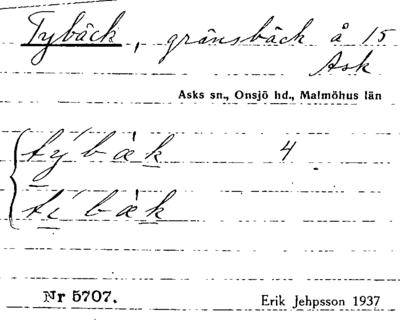 Tybäck, gränsbäck å 15
Ask
Asks sn., Onsjö hd., Malmöhus län
týbàk 4
tíbàk
Nr 5707.
Erik Jehpsson 1937